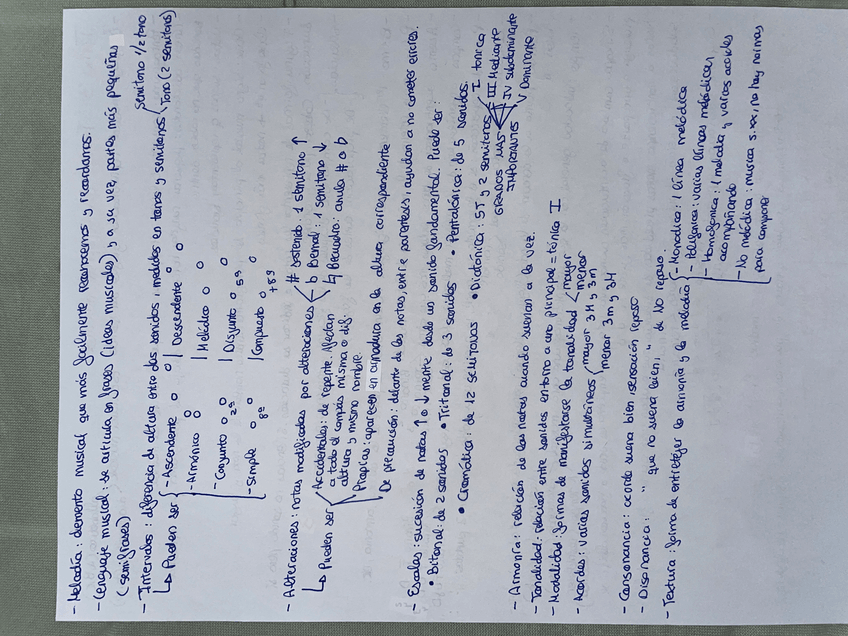 - Melodía: elemento musical que más fácilmente reconocemos y recordamos.
- Lenguaje musical: se articula en frases (ideas musicales) y a su vez, partes más pequeñas
(semifrases)
- Intervalos: diferencia de altura entre dos sonidos, medidos en tonos y semitonos
semitono 1/2 tono
Tono (2 semitonos)
↳ Pueden ser
- Ascendente | Descendente
- Armónico | Melódico
- Conjunto 2ª | Disjunto 5ª
- Simple 8ª | Compuesto +8ª
- Alteraciones: notas modificadas por alteraciones
# sostenido: 1 semitono ↑
b Bemol: 1 semitono ↓
♮ Becuadro: anula # o b
↳ Pueden ser
Accidentales: de repente. Afectan
a todo el compás misma o dif.
altura y mismo nombre.
Propias: aparecen en armadura en la altura correspondiente
De precaución: delante de las notas, entre paréntesis, ayudan a no cometer errores.
- Escalas: sucesión de notas ↑ o ↓ mente desde un sonido fundamental. Puede ser:
• Bitonal: de 2 sonidos • Tritonal: de 3 sonidos • Pentatónica: de 5 sonidos.
• Cromática: de 12 semitonos • Diatónica: 5T y 2 semitonos
GRADOS MÁS
IMPORTANTES
I tónica
III Mediante
IV subdominante
V Dominante
- Armonía: relación de las notas cuando suenan a la vez.
- Tonalidad: relación entre sonidos entorno a uno principal = tónica I
- Modalidad: formas de manifestarse la tonalidad
mayor
menor
- Acordes: varios sonidos simultáneos
mayor 3M y 3m
menor 3m y 3M
- Consonancia: acorde suena bien, sensación reposo
- Disonancia: " que no suena bien, " de NO reposo.
- Textura: forma de entretejer la armonía y la melodía
- Monódica: 1 línea melódica
- Polifónica: varias líneas melódicas
- Homofónica: 1 melodía y varios acordes
acompañando
- No melódica: música s.XX, no hay normas
para componer